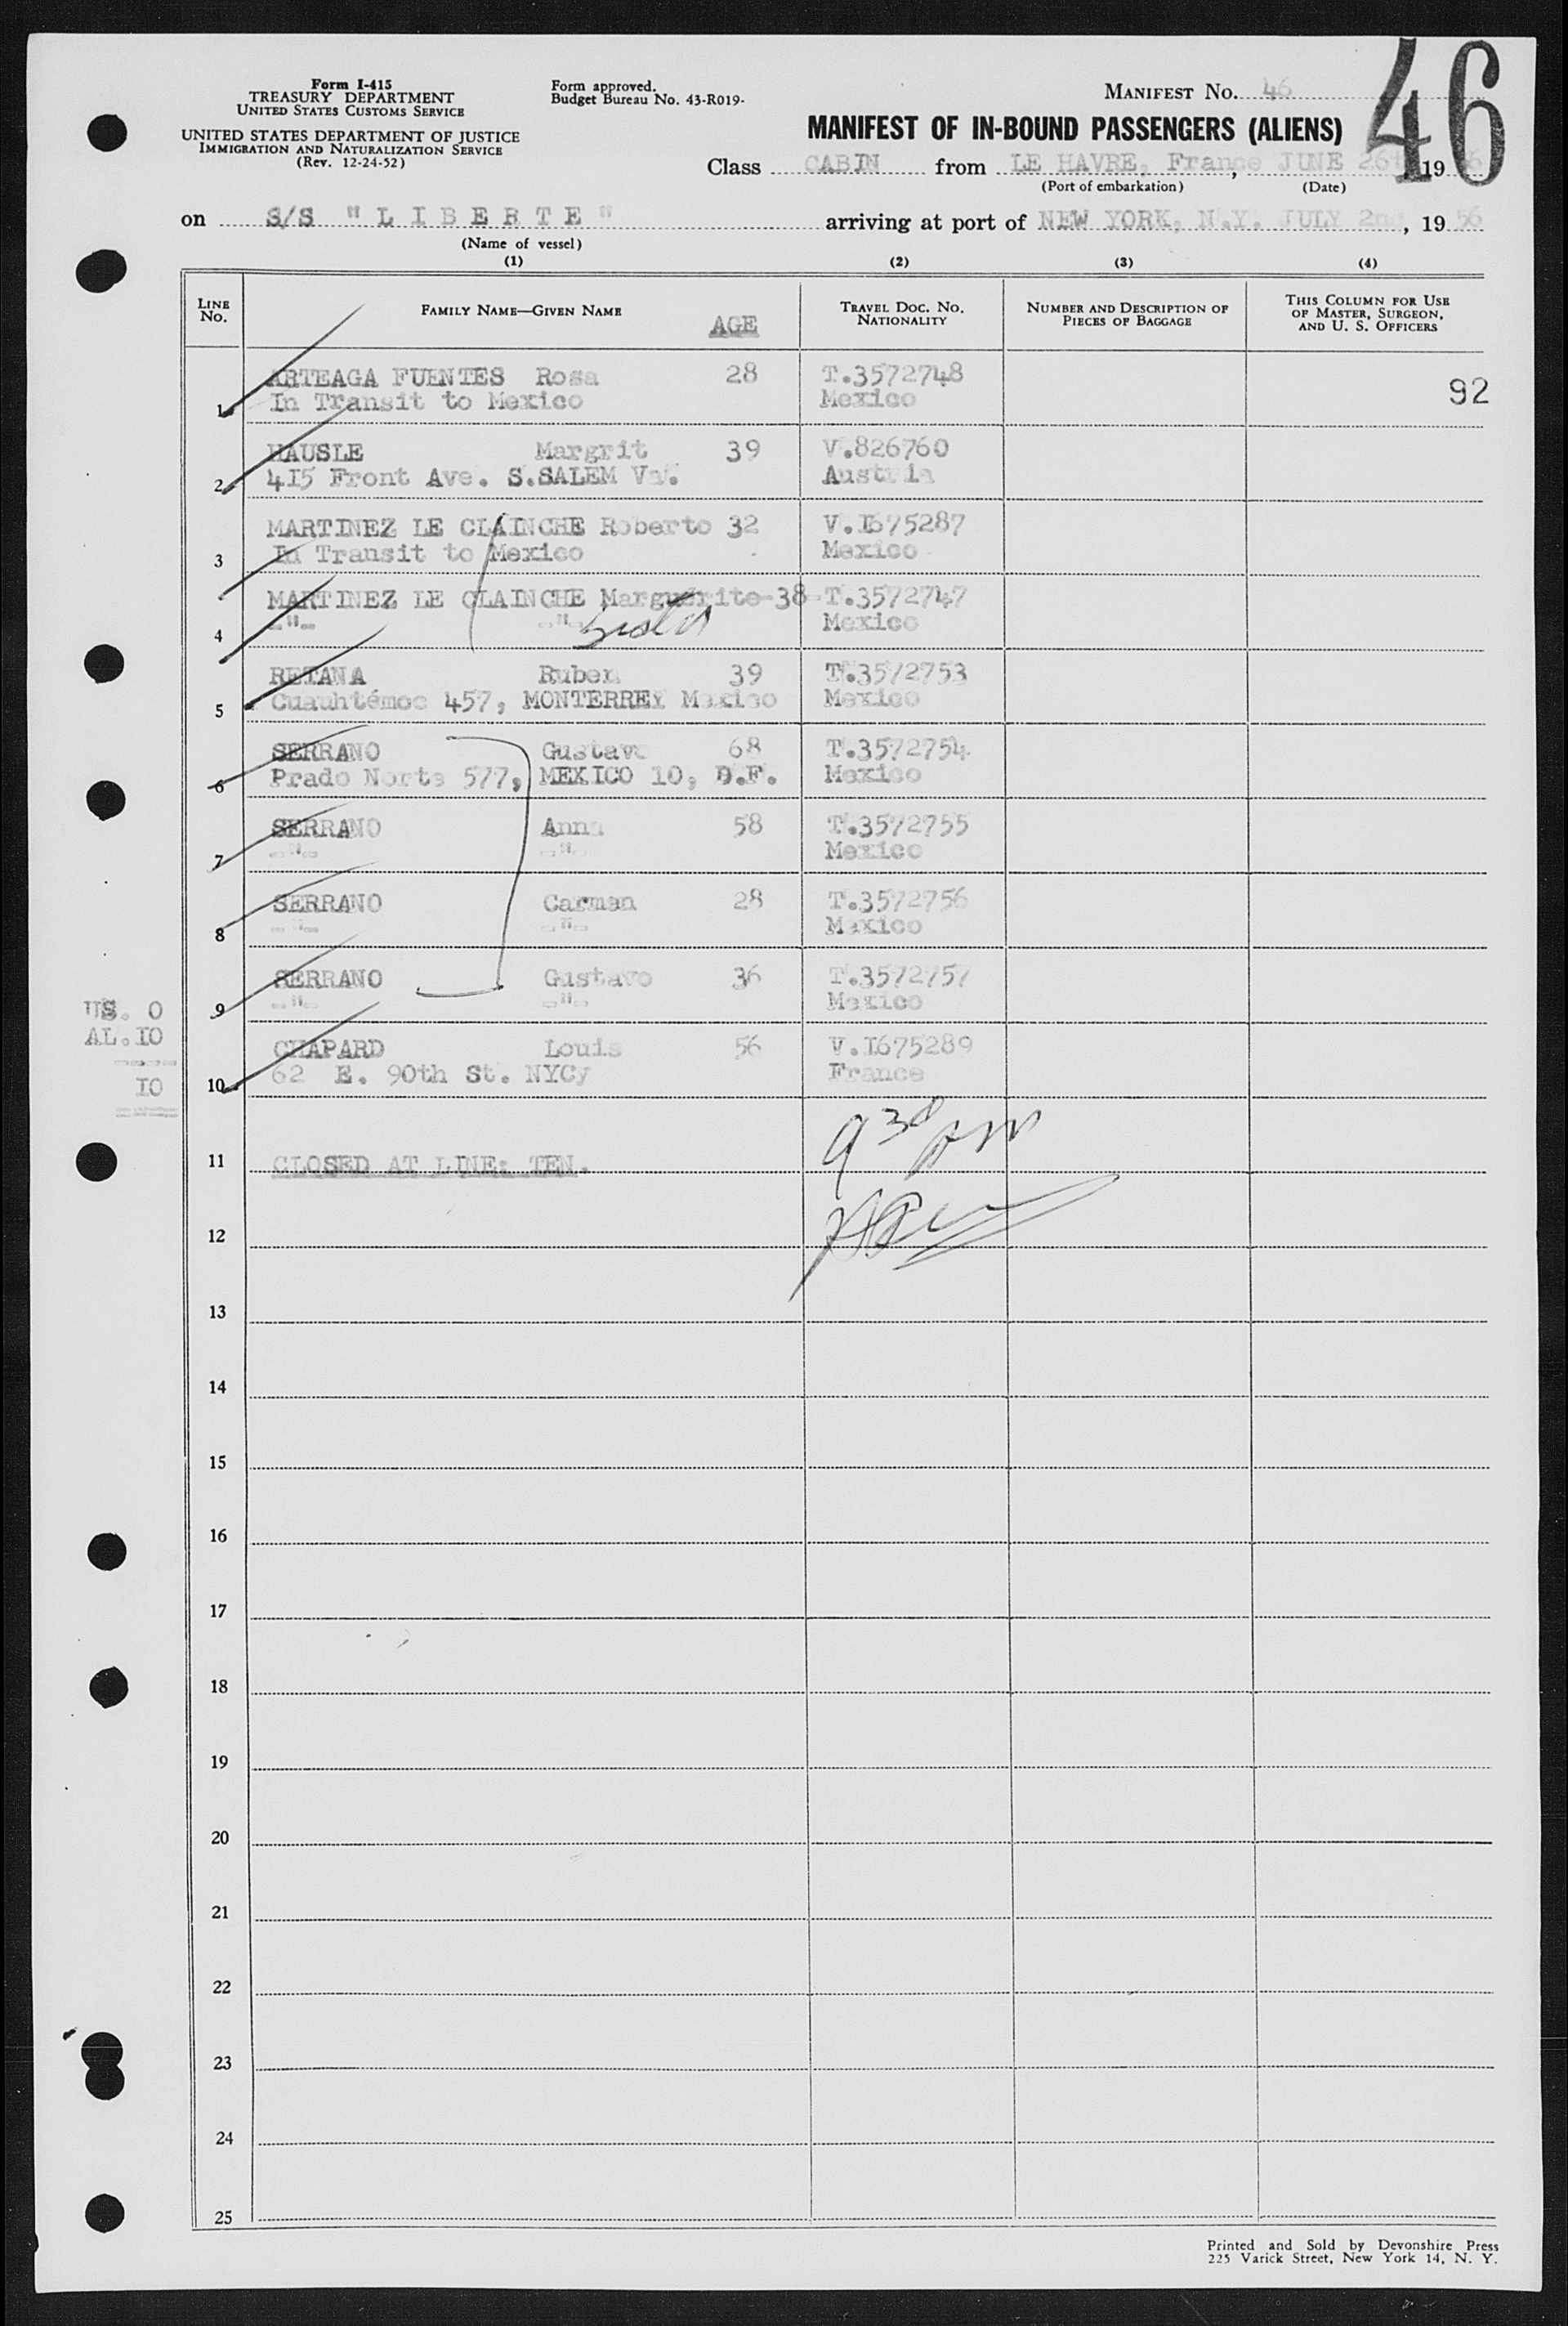 Form I-415
TREASURY DEPARTMENT
UNITED STATES CUSTOMS SERVICE
UNITED STATES DEPARTMENT OF JUSTICE
IMMIGRATION AND NATURALIZATION SERVICE
(Rev. 12-24-52)
Form approved.
Budget Bureau No. 43-R019-
MANIFEST NO. 46
46
MANIFEST OF IN-BOUND PASSENGERS (ALIENS)
Class CABIN from LE HAVRE, France, JUNE 19
(Port of embarkation) (Date)
on S/S "LIBERTE" arriving at port of NEW YORK, N.Y. JULY 2nd, 1956
(Name of vessel)
(1) (2) (3) (4)
LINE NO. FAMILY NAME—GIVEN NAME AGE TRAVEL DOC. NO. NATIONALITY NUMBER AND DESCRIPTION OF PIECES OF BAGGAGE THIS COLUMN FOR USE OF MASTER, SURGEON, AND U. S. OFFICERS
ARTEAGA FUENTES Rosa 28 T.3572748
1 In Transit to Mexico Mexico 92
HAUSLE Margrit 39 V.826760
2 415 Front Ave. S.SALEM Va. Austria
MARTINEZ LE CLAINCHE Roberto 32 V.I675287
3 In Transit to Mexico Mexico
MARTINEZ LE CLAINCHE Marguerite-38-T.3572747
4 -"- -"- Sister Mexico
RETANA Ruben 39 T.3572753
5 Cuauhtémoc 457, MONTERREY Mexico Mexico
SERRANO Gustavo 68 T.3572754
6 Prado Norte 577, MEXICO 10, D.F. Mexico
SERRANO Anna 58 T.3572755
7 -"- -"- Mexico
SERRANO Carmen 28 T.3572756
8 -"- -"- Mexico
SERRANO Gustavo 36 T.3572757
9 -"- -"- Mexico
US. 0
AL.I0
I0
CHAPARD Louis 56 V.I675289
10 62 E. 90th St. NYCy France
9 30 AM
11 CLOSED AT LINE: TEN.
12
13
14
15
16
17
18
19
20
21
22
23
24
25
Printed and Sold by Devonshire Press
225 Varick Street, New York 14, N. Y.